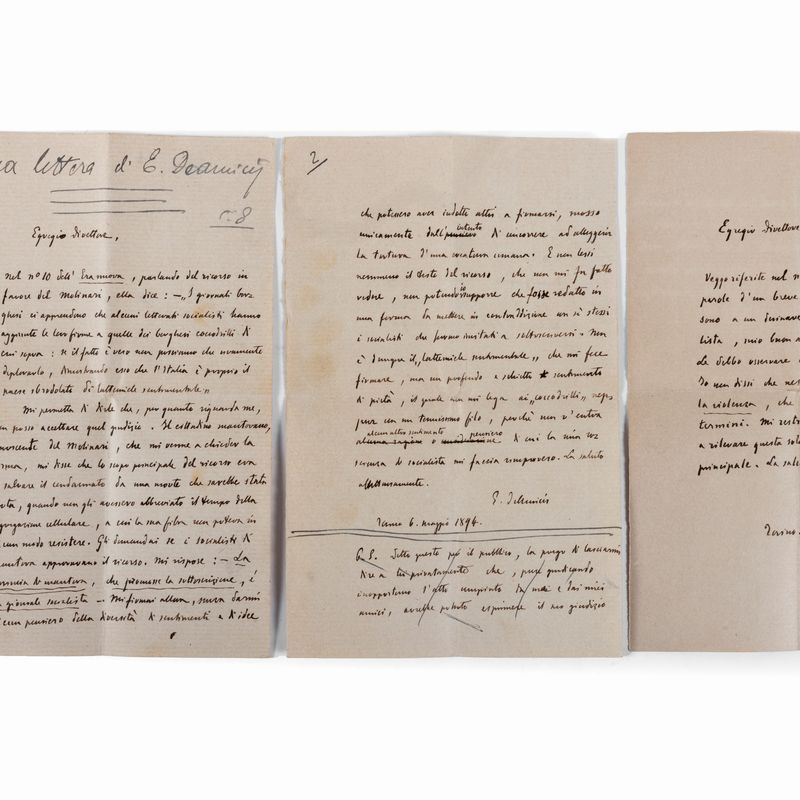 a lettera di E. Deamicis
Egregio Direttore,
nel nº 10 dell' Era nuova, parlando del ricorso in
favore del Molinari, ella dice: – „I giornali bor-
ghesi ci apprendono che alcuni letterati socialisti hanno
aggiunto le loro firme a quelle dei borghesi coccodrilli di
cui sopra: se il fatto è vero non possiamo che vivamente
deplorarlo, dimostrando esso che l'Italia è proprio il
paese sbrodolato di lattemiele sentimentale„
Mi permetta di dirle che, per quanto riguarda me,
on posso accettare quel giudizio. Il cittadino mantovano,
onoscente del Molinari, che mi venne a chieder la
irma, mi disse che lo scopo principale del ricorso era
salvare il condannato da una morte che sarebbe stata
quando non gli avessero abbreviato il tempo della
segregazione cellulare, a cui la sua fibra non poteva in
cun modo resistere. Gli domandai se i socialisti di
antova approvavano il ricorso. Mi rispose: – La
di Mantova, che promosse la sottoscrizione, è
giornale socialista – Mi firmai allora, senza darmi
pensiero della diversità di sentimenti e d'idee
2/
che potessero aver indotto altri a firmarsi, mosso
unicamente dall' intento di concorrere ad alleggerir
la tortura d'una creatura umana. E non lessi
nemmeno il testo del ricorso, che non mi fu fatto
vedere, non potendo io supporre che fosse redatto in
una forma da mettere in contraddizione con sè stessi
i socialisti che furono invitati a sottoscriversi. Non
è dunque il „lattemiele sentimentale„ che mi fece
firmare, ma un profondo e schietto sentimento
di pietà, il quale non mi lega ai „coccodrilli„ nep-
pure con un tenuissimo filo, perchè non v'entra
alcun altro sentimento o pensiero di cui la mia co-
scienza di socialista mi faccia rimprovero. La saluto
affettuosamente.
E. DeAmicis
Torino 6. maggio 1894.
P. S. Detto questo per il pubblico, la prego di lasciarmi
dire a lei privatamente che, pure giudicando
inopportuno l'atto compiuto da me e dai miei
amici, avrebbe potuto esprimere il suo giudizio
Egregio Direttore
Veggo riferite nel n
parole d'un breve
sono a un
lista, mio buon a
de debbo osservare
Io non dissi che nes
la violenza, che
termini. Mi rest
a rilevare questa sola
principale. La salu
Torino.